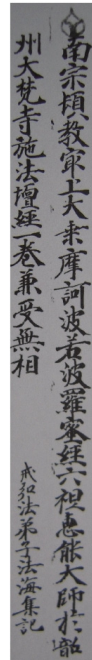 南宗頓教最上大乘摩訶波若波羅蜜經六祖惠能大師於韶
州大梵寺施法壇經一卷兼受無相
戒弘法弟子法海集記